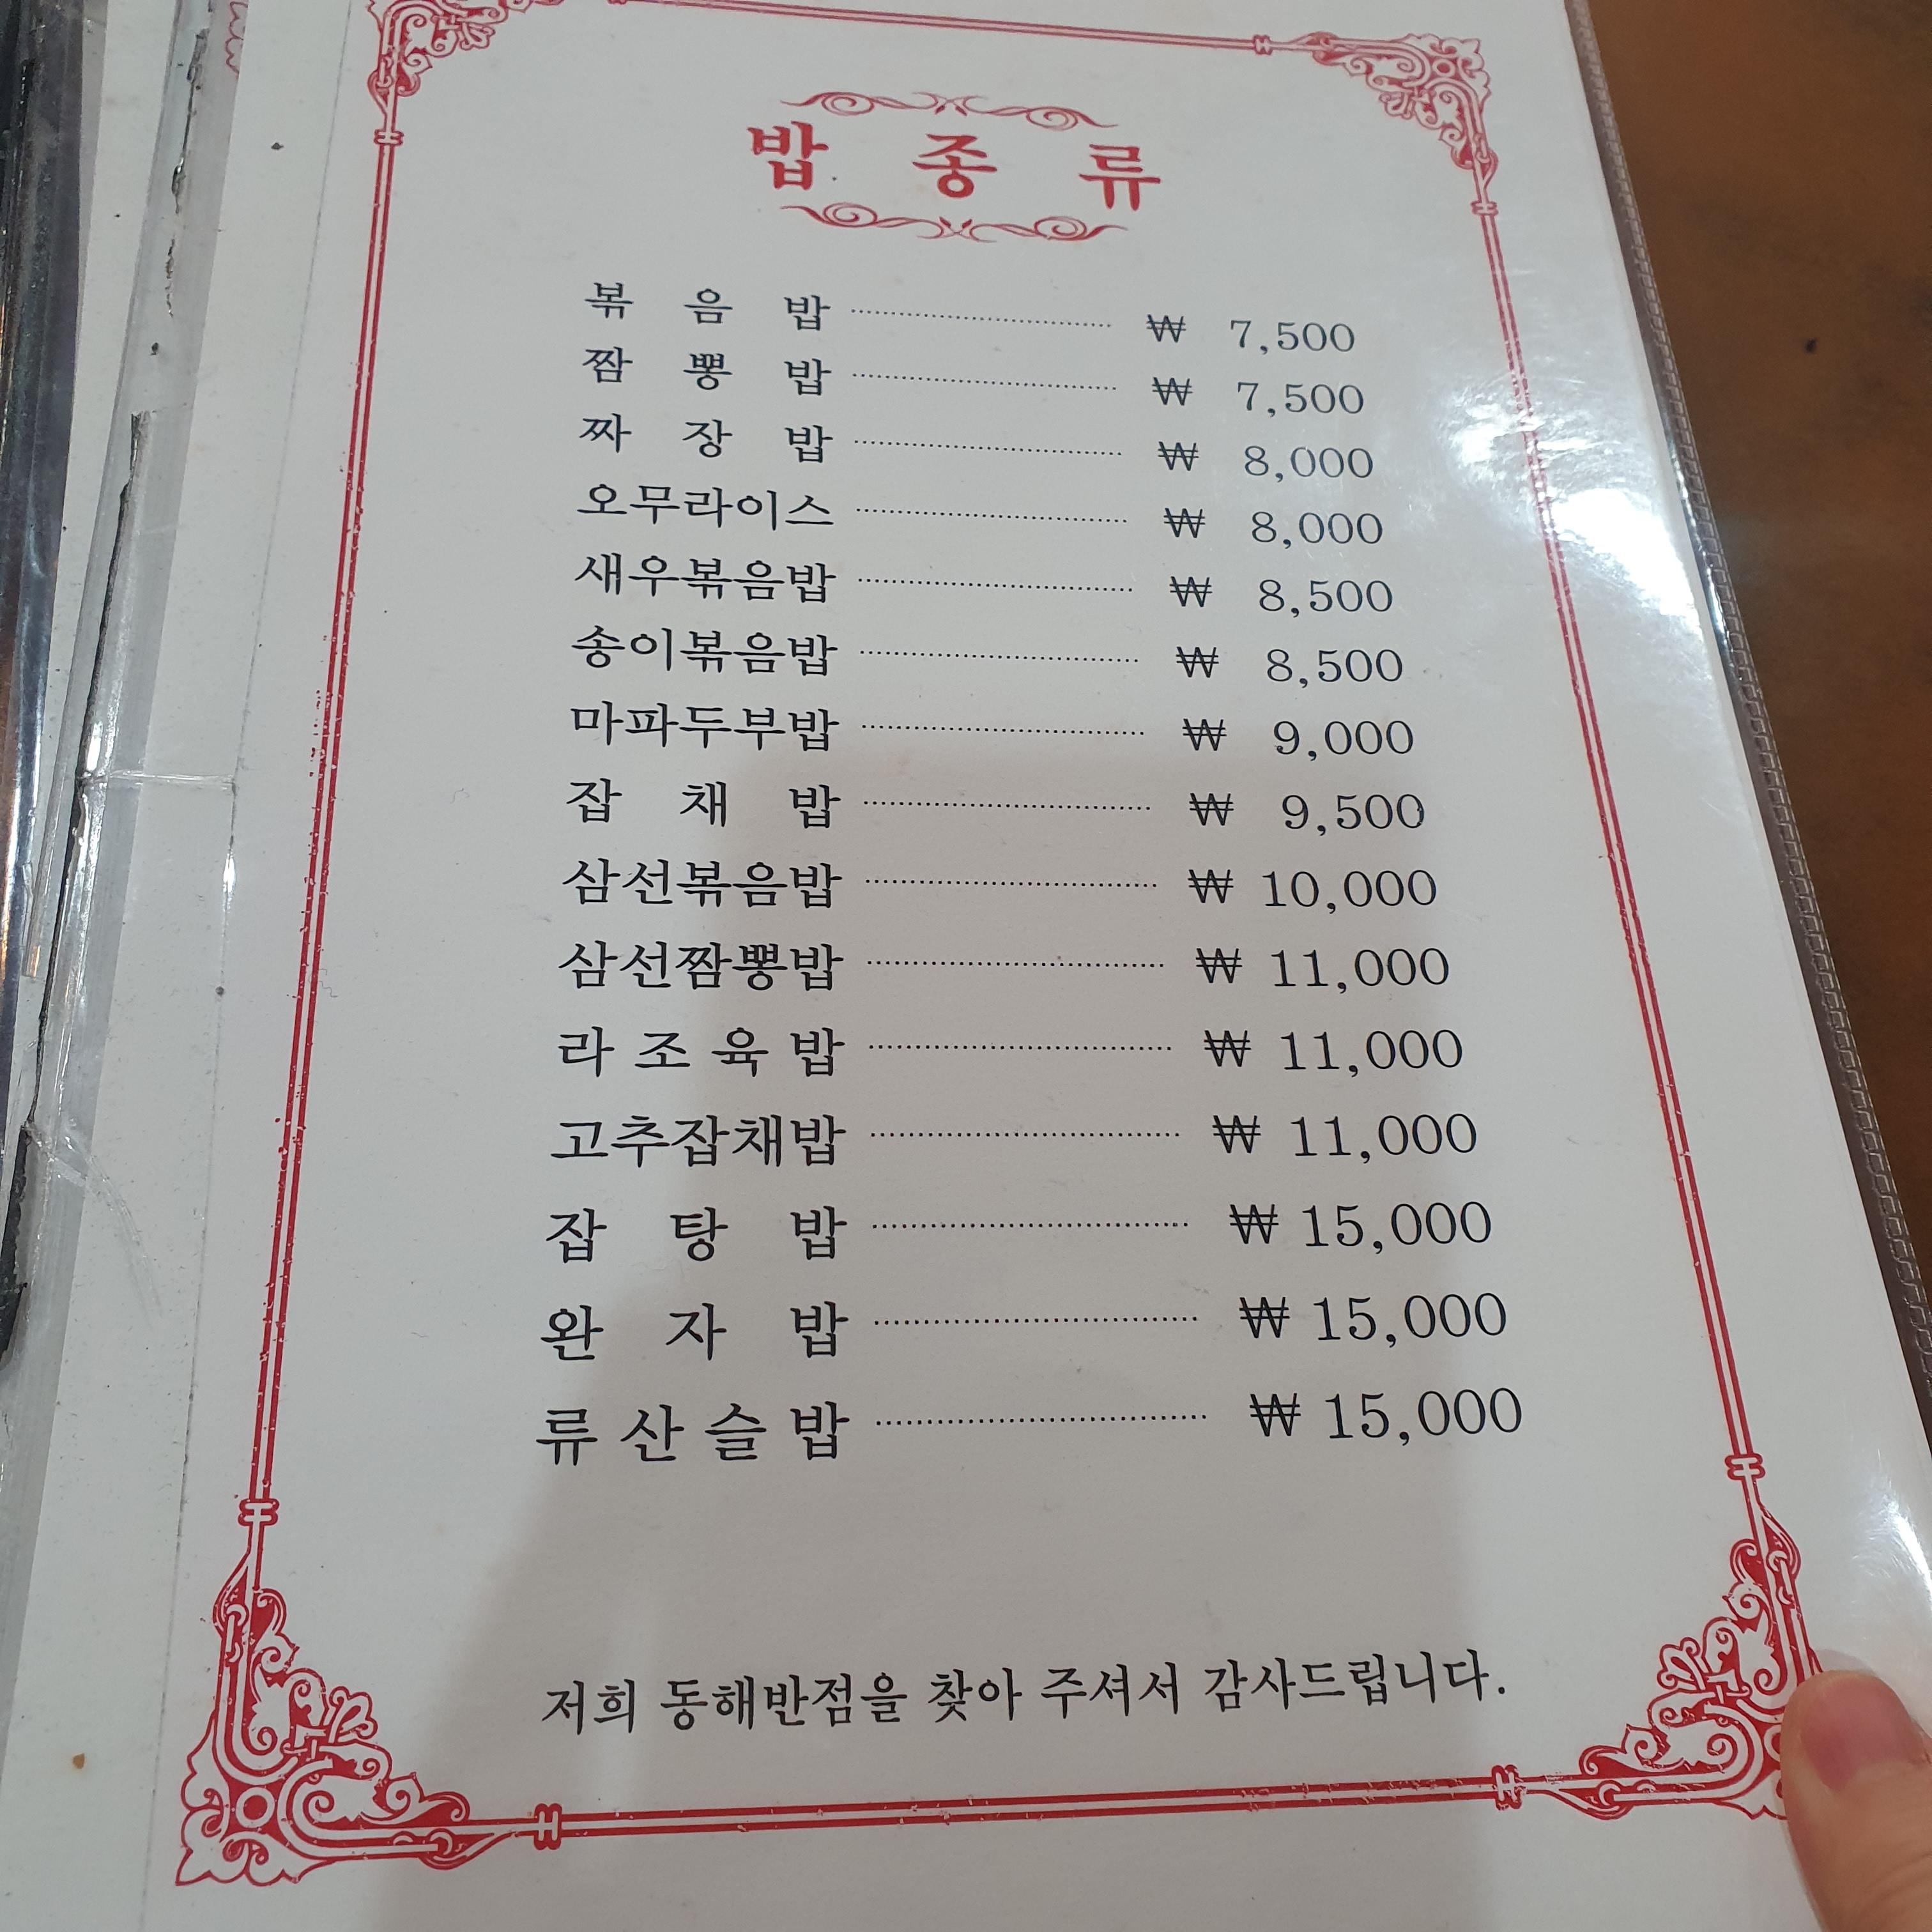 밥 종 류
볶 음 밥 ₩ 7,500
짬 뽕 밥 ₩ 7,500
짜 장 밥 ₩ 8,000
오무라이스 ₩ 8,000
새우볶음밥 ₩ 8,500
송이볶음밥 ₩ 8,500
마파두부밥 ₩ 9,000
잡 채 밥 ₩ 9,500
삼선볶음밥 ₩ 10,000
삼선짬뽕밥 ₩ 11,000
라 조 육 밥 ₩ 11,000
고추잡채밥 ₩ 11,000
잡 탕 밥 ₩ 15,000
완 자 밥 ₩ 15,000
류 산 슬 밥 ₩ 15,000
저희 동해반점을 찾아 주셔서 감사드립니다.